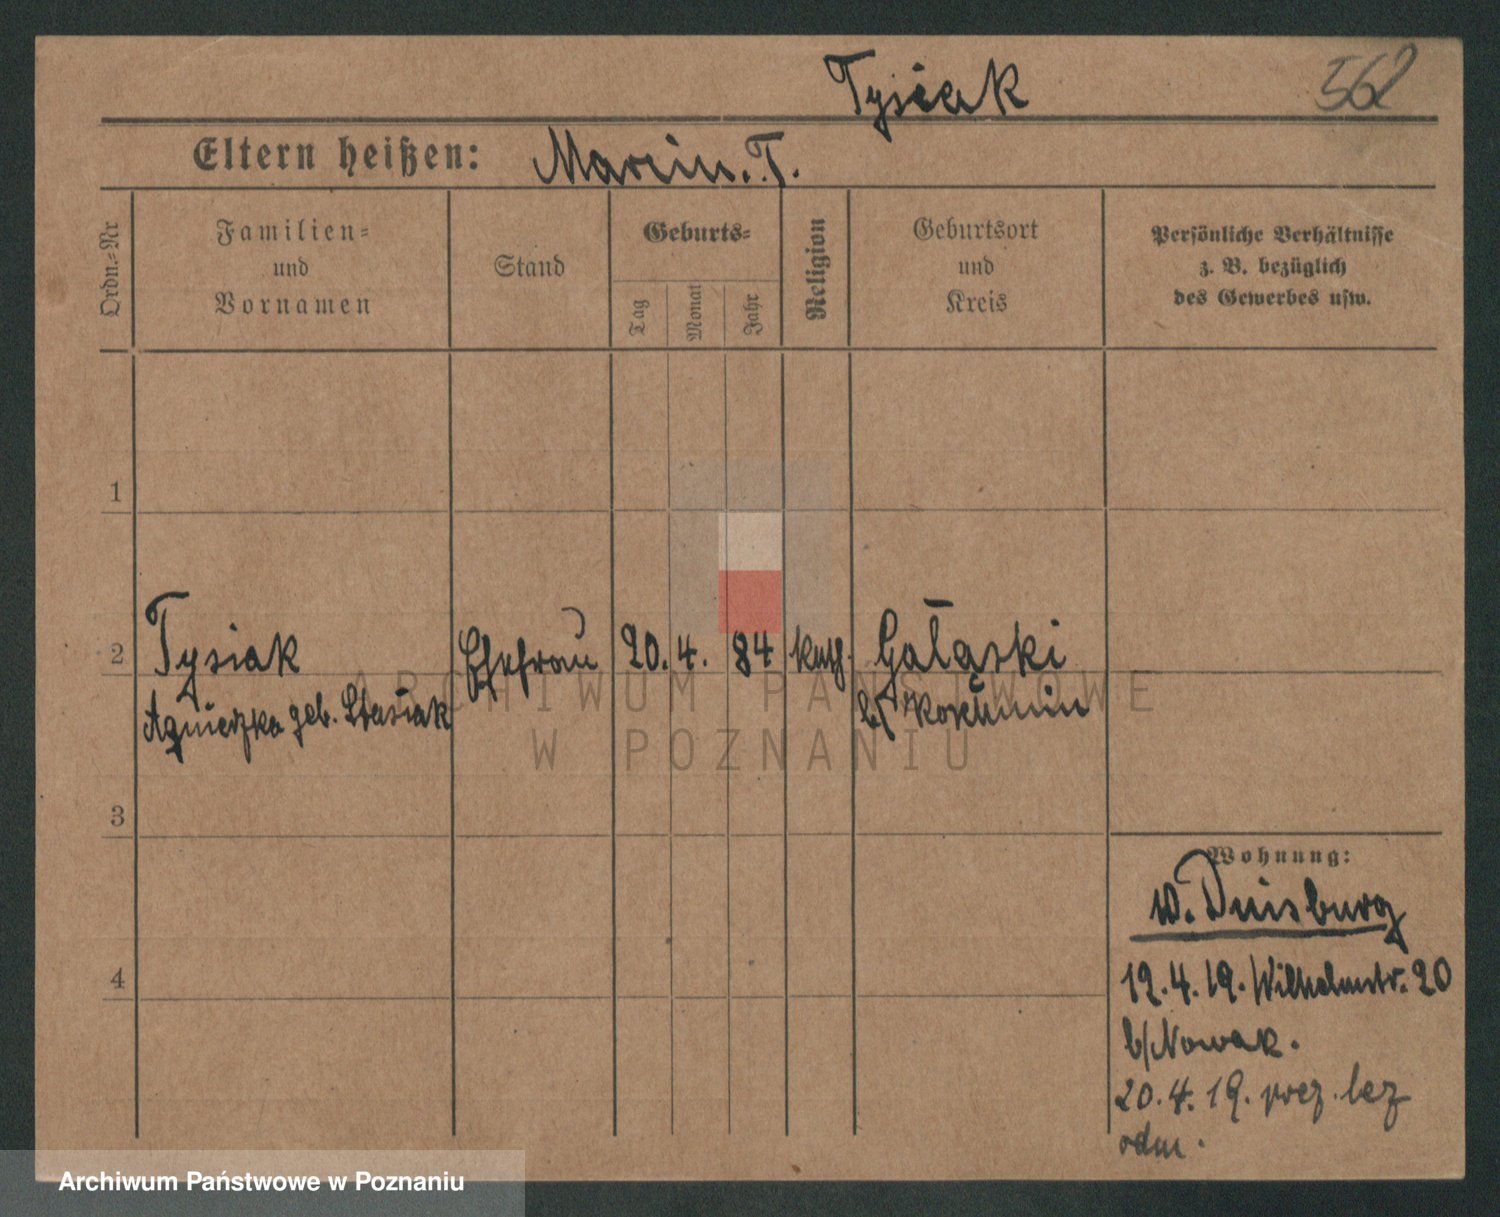 Tysiak
562
Eltern heißen: Marcin. T.
Ordn.-Nr
Familien-
und
Vornamen
Stand
Geburts-
Tag
Monat
Jahr
Religion
Geburtsort
und
Kreis
Persönliche Verhältnisse
z. B. bezüglich
des Gewerbes usw.
1
2 Tysiak Ehefrau 20. 4. 84 kath. Gałąski
Agnieszka geb. Stasiak b/ Koźmin
3
4
Wohnung:
w. Duisburg
12. 4. 19. Wilhelmstr. 20
b/ Nowak.
20. 4. 19. bez
odm.
ARCHIWUM PAŃSTWOWE
W POZNANIU
Archiwum Państwowe w Poznaniu